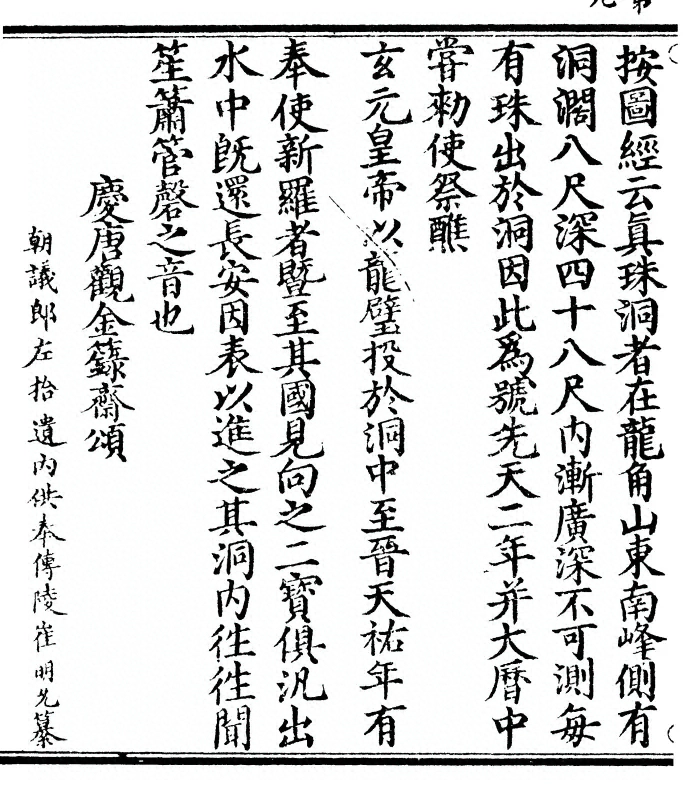 按圖經云眞珠洞者在龍角山東南峰側有
洞濶八尺深四十八尺內漸廣深不可測每
有珠出於洞因此爲號先天二年并大曆中
甞勑使祭醮
玄元皇帝以龍璧投於洞中至晉天祐年有
奉使新羅者曁至其國見向之二寶俱汎出
水中旣還長安因表以進之其洞內徃徃聞
笙簫管磬之音也
慶唐觀金籙齋頌
朝議郎左拾遺內供奉傳陵崔明允纂